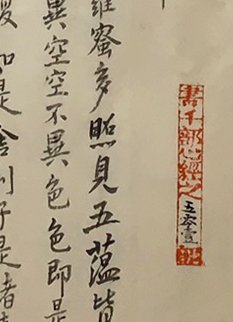 書千部心經之五零壹部
維蜜多照見五蘊皆
異空空不異色色即是
復如是舍利子是諸